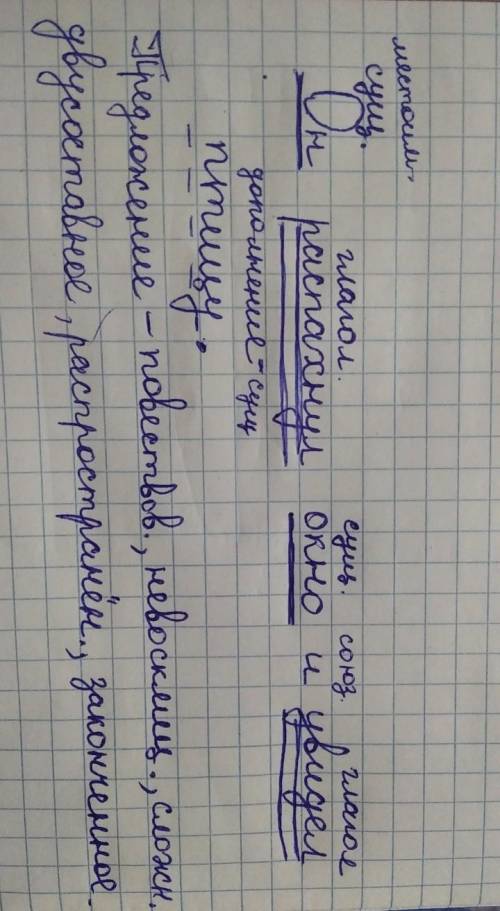 местоим.
сущ. глагол. сущ. союз. глагол
Он распахнул окно и увидел
дополнение - сущ
птицу.
Предложение - повествов., невосклиц., сложн,
двусоставное, распространён., законченное.